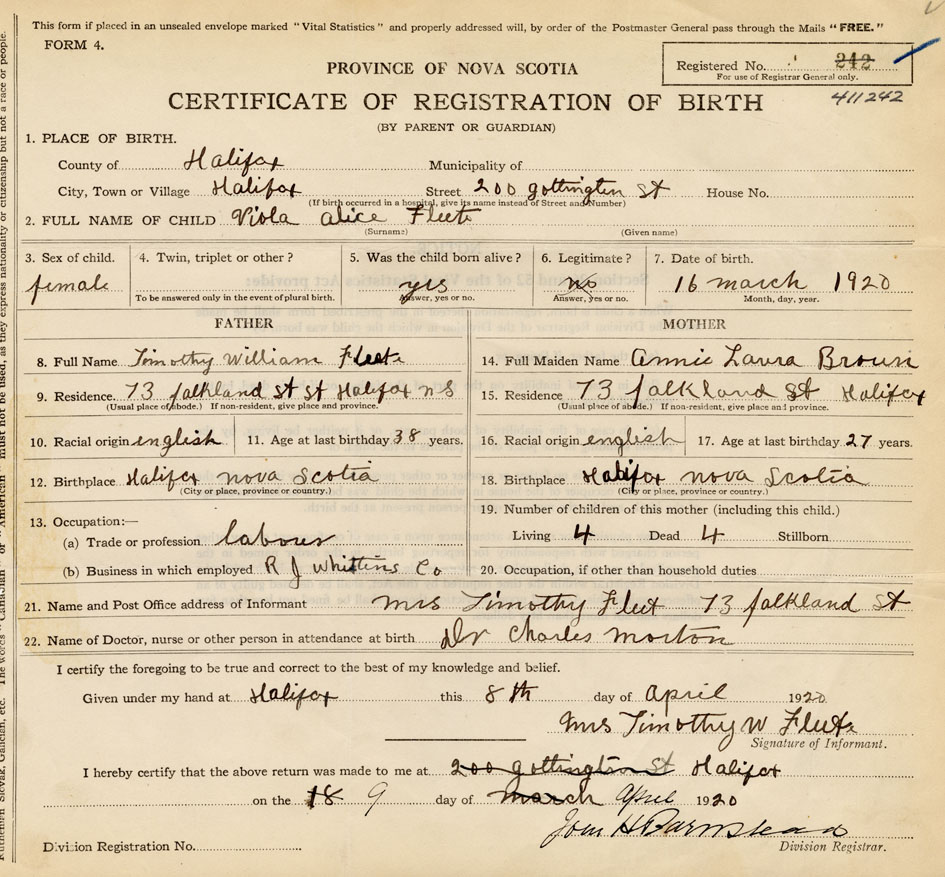 This form if placed in an unsealed envelope marked "Vital Statistics" and properly addressed will, by order of the Postmaster General pass through the Mails "FREE."
FORM 4.
Registered No. 242
For use of Registrar General only.
411242
PROVINCE OF NOVA SCOTIA
CERTIFICATE OF REGISTRATION OF BIRTH
(BY PARENT OR GUARDIAN)
1. PLACE OF BIRTH.
County of Halifax Municipality of
City, Town or Village Halifax Street 200 gottington St House No.
(If birth occurred in a hospital, give its name instead of Street and Number)
2. FULL NAME OF CHILD Viola alice Fleet
(Surname) (Given name)
3. Sex of child. 4. Twin, triplet or other ? 5. Was the child born alive ? 6. Legitimate ? 7. Date of birth.
female yes no 16 march 1920
To be answered only in the event of plural birth. Answer, yes or no. Answer, yes or no. Month, day, year.
FATHER MOTHER
8. Full Name Timothy William Fleet 14. Full Maiden Name annie Laura Brown
9. Residence. 73 falkland St St Halifax ns 15. Residence 73 falkland St Halifax
(Usual place of abode.) If non-resident, give place and province. (Usual place of abode.) If non-resident, give place and province.
10. Racial origin english 11. Age at last birthday 38 years. 16. Racial origin english 17. Age at last birthday 27 years.
12. Birthplace Halifax nova Scotia 18. Birthplace Halifax nova Scotia
(City or place, province or country.) (City or place, province or country.)
13. Occupation:— 19. Number of children of this mother (including this child.)
(a) Trade or profession labour Living 4 Dead 4 Stillborn
(b) Business in which employed R J Whittins Co 20. Occupation, if other than household duties
21. Name and Post Office address of Informant mrs Timothy Fleet 73 falkland St
22. Name of Doctor, nurse or other person in attendance at birth Dr Charles morton
I certify the foregoing to be true and correct to the best of my knowledge and belief.
Given under my hand at Halifax this 8th day of april 1920
mrs Timothy W Fleet
Signature of Informant.
I hereby certify that the above return was made to me at 200 gottington St Halifax
on the 18 9 day of march april 1920
John H Barnstead
Division Registration No. Division Registrar.
must not be used, as they express nationality or citizenship but not a race or people.